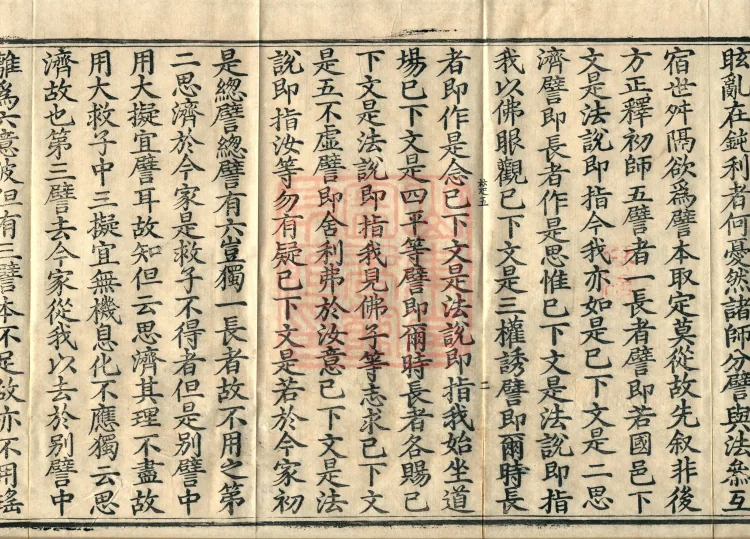 眩亂在鈍利者何憂然諸師分譬與法參互
宿世舛隔欲爲譬本取定莫從故先叙非後
方正釋初師五譬者一長者譬即若國邑下
文是法說即指今我亦如是已下文是二思
濟譬即長者作是思惟已下文是法說即指
我以佛眼觀已下文是三權誘譬即爾時長
者即作是念已下文是法說即指我始坐道
場已下文是四平等譬即爾時長者各賜已
下文是法說即指我見佛子等志求已下文
是五不虛譬即舍利弗於汝意已下文是法
說即指汝等勿有疑已下文是若於今家初
是緫譬緫譬有六豈獨一長者故不用之第
二思濟於今家是救子不得者但是別譬中
用大擬宜譬耳故知但云思濟其理不盡故
用大救子中三擬宜無機息化不應獨云思
濟故也第三譬去今家從我以去於別譬中
離爲六意彼但有三譬本不足故亦不用瑤